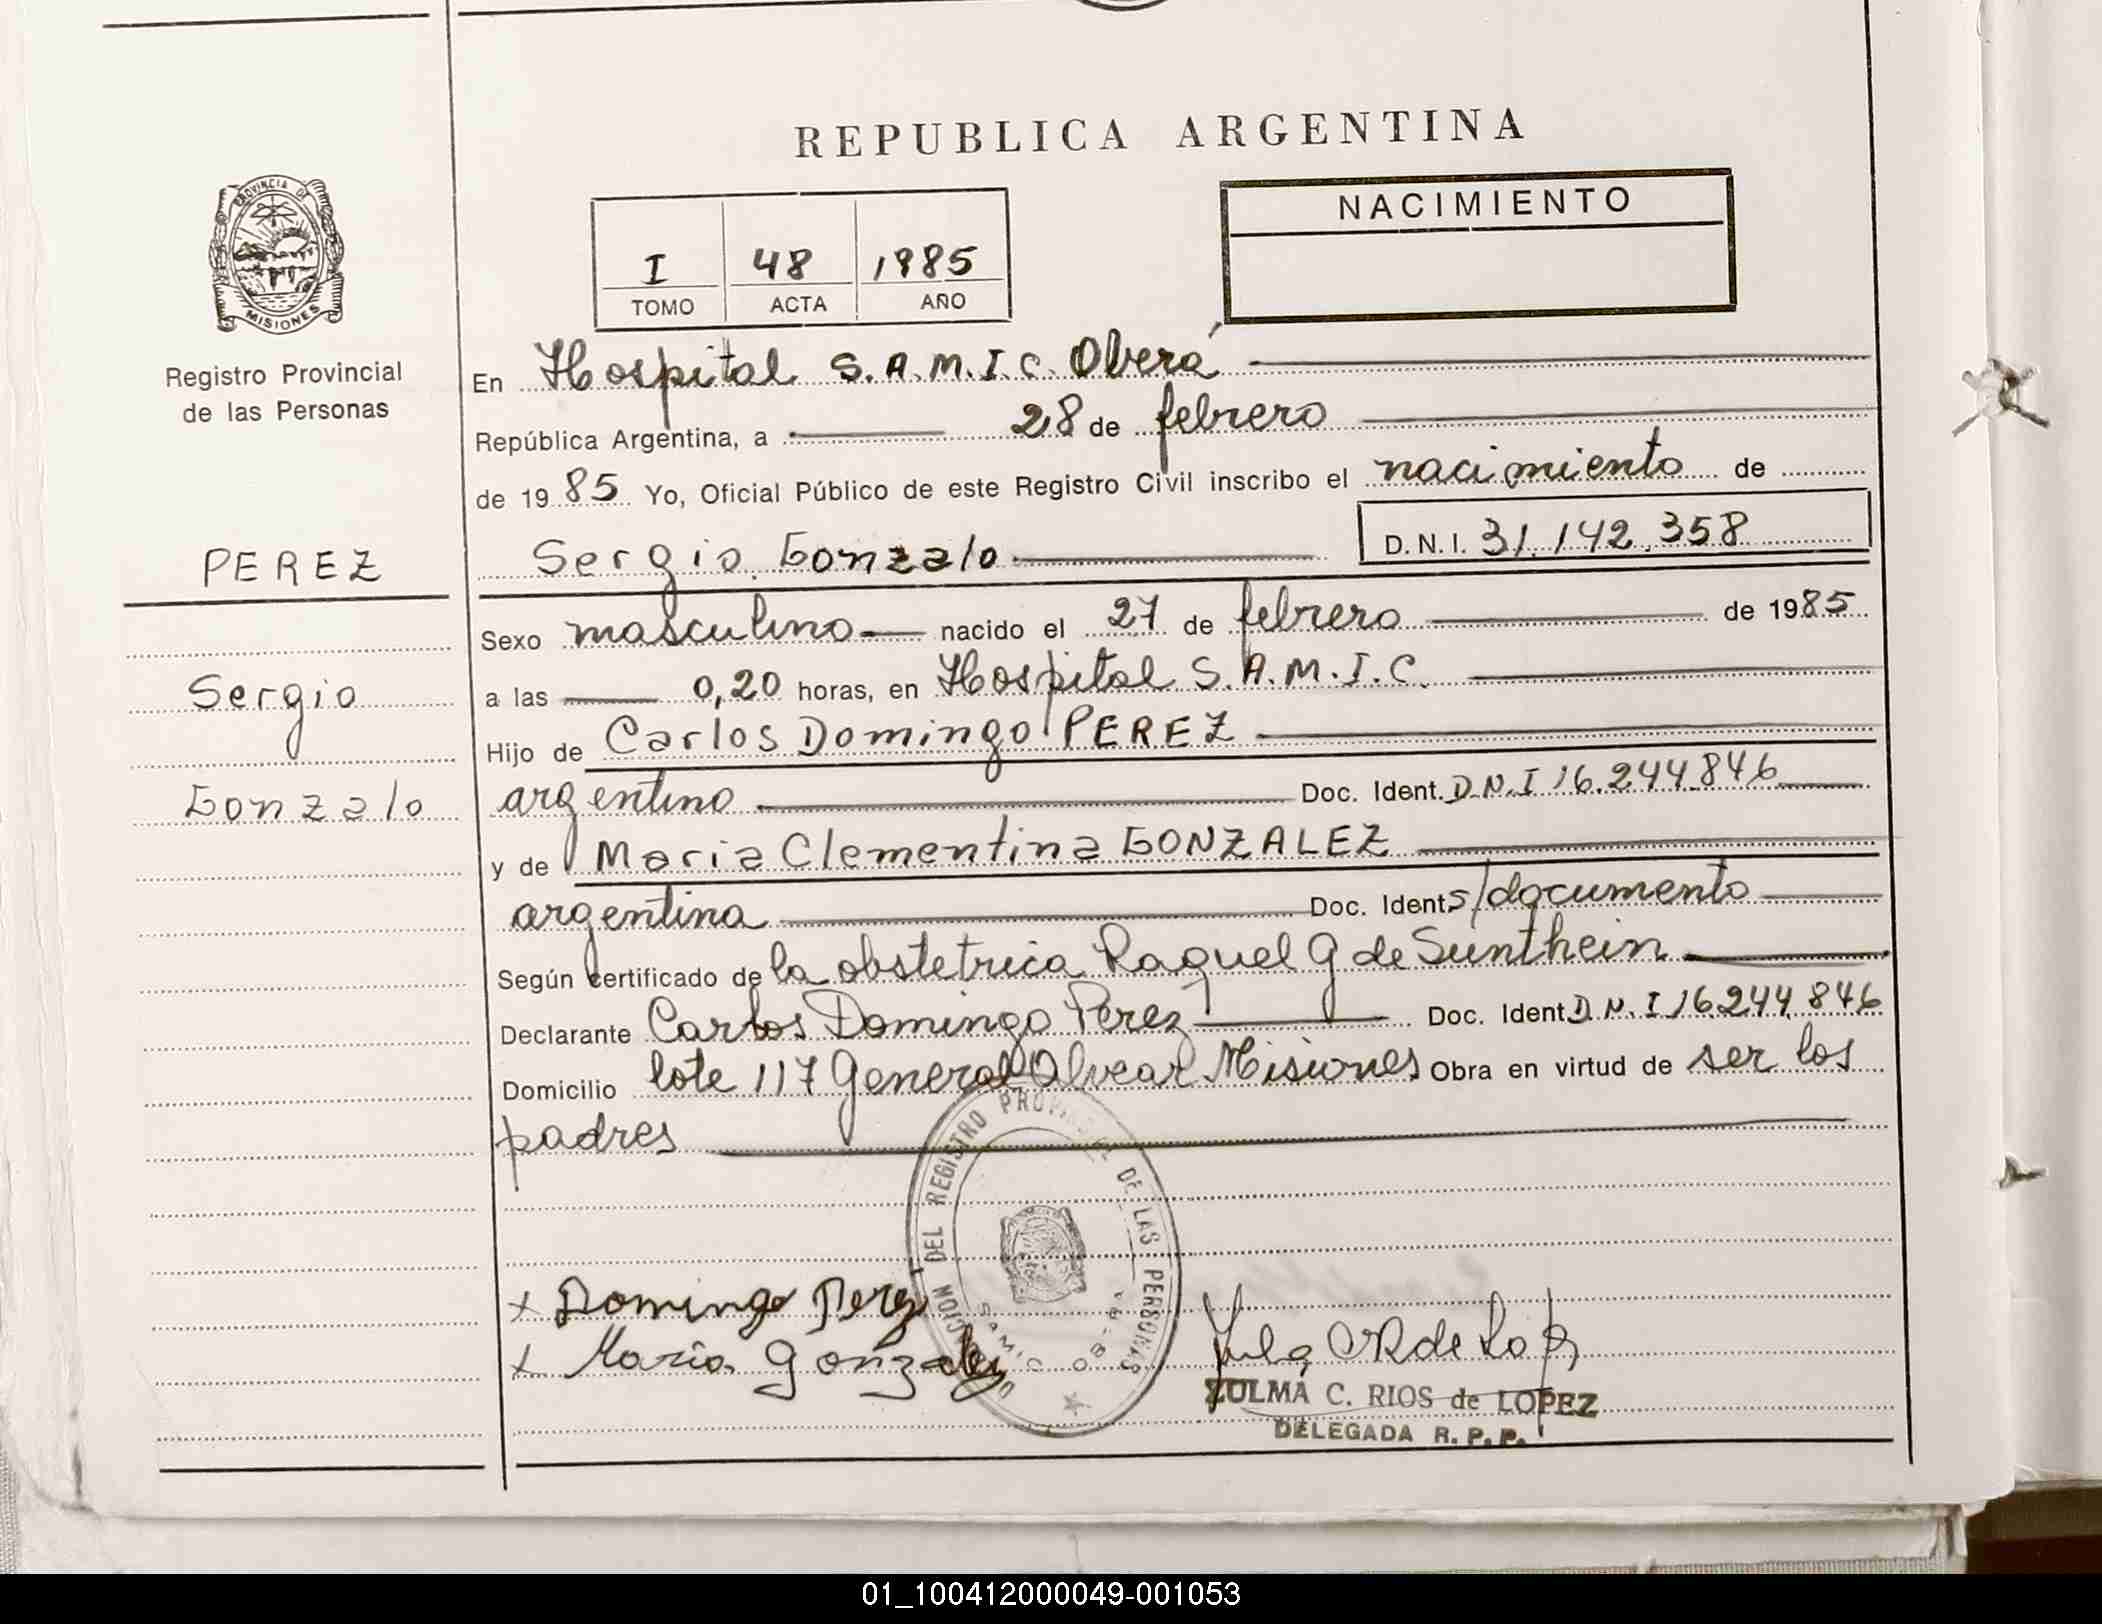 REPUBLICA ARGENTINA
PROVINCIA DE
MISIONES
Registro Provincial
de las Personas
PEREZ
Sergio
Gonzalo
I 48 1985
TOMO ACTA AÑO
NACIMIENTO
En Hospital S.A.M.I.C. Oberá
República Argentina, a 28 de febrero
de 1985 Yo, Oficial Público de este Registro Civil inscribo el nacimiento de
Sergio Gonzalo D.N.I. 31.142.358
Sexo masculino nacido el 27 de febrero de 1985
a las 0,20 horas, en Hospital S.A.M.I.C.
Hijo de Carlos Domingo PEREZ
argentino Doc. Ident. D.N.I 16.244.846
y de Maria Clementina GONZALEZ
argentina Doc. Ident. s/documento
Según certificado de la obstetrica Raquel G de Sunthein
Declarante Carlos Domingo Perez Doc. Ident. D.N.I 16.244.846
Domicilio lote 117 General Alvear Misiones Obra en virtud de ser los
padres
DEL REGISTRO PROVINCIAL DE LAS PERSONAS
SAMIC OBERA
x Domingo Perez
x Maria Gonzalez
ZULMA C. RIOS de LOPEZ
DELEGADA R. P. P.
01_100412000049-001053